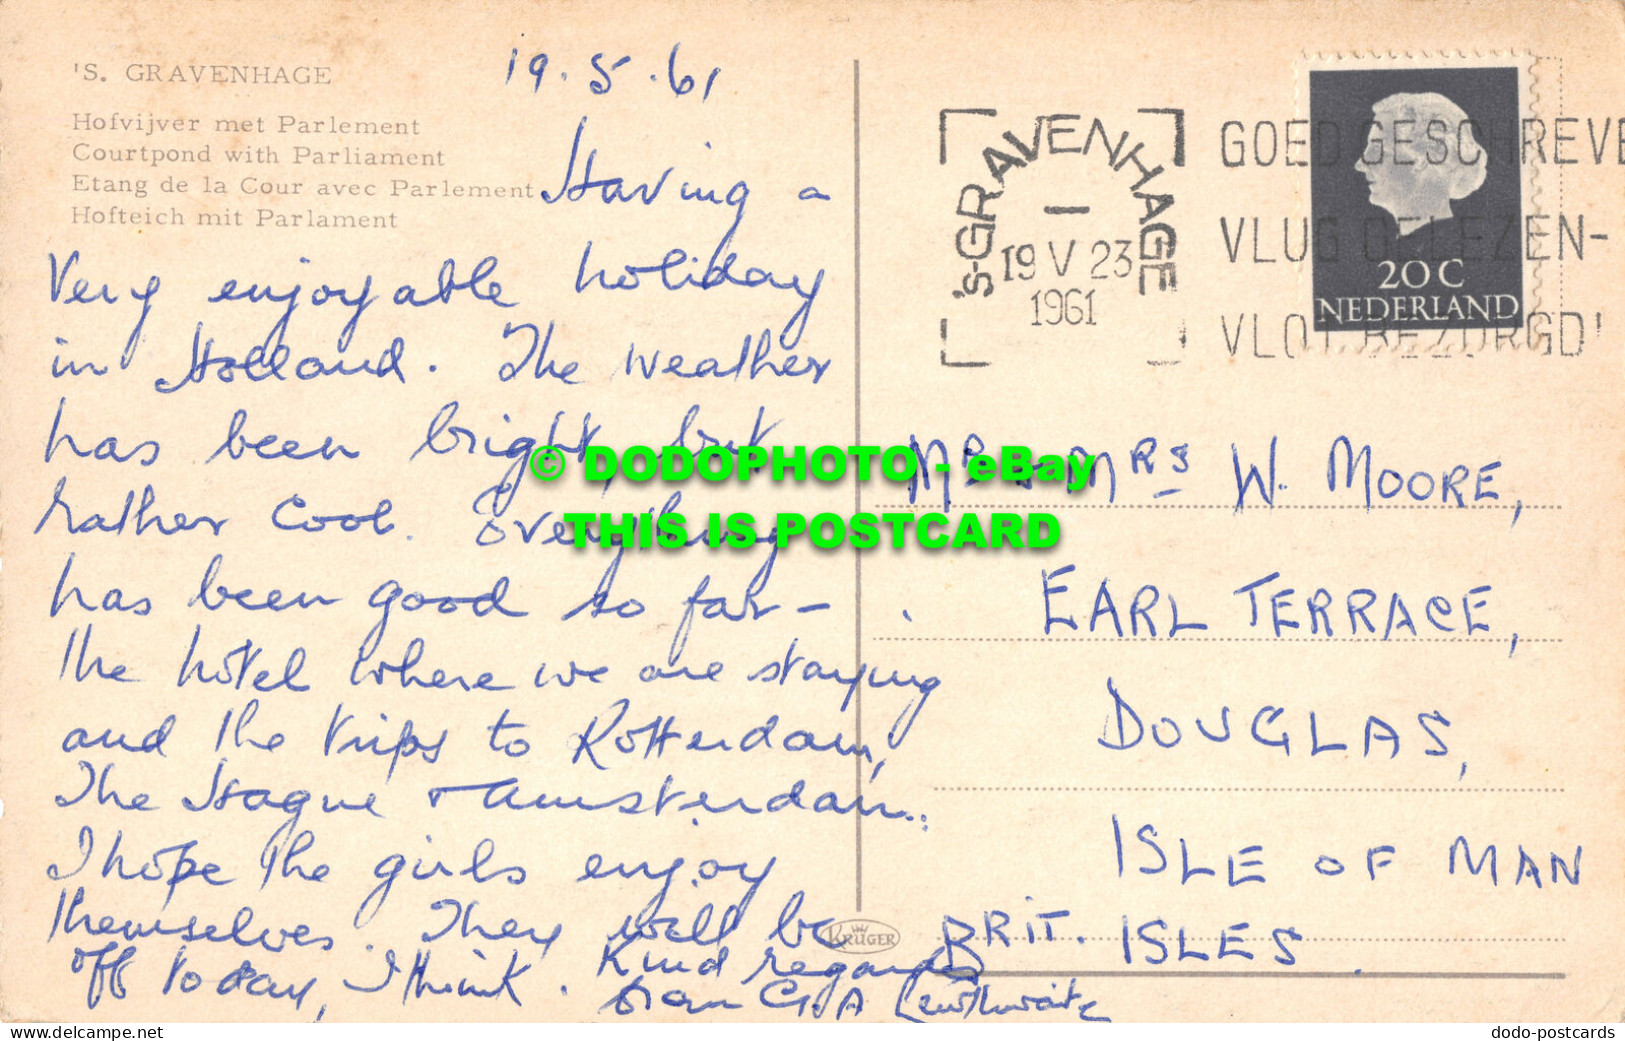 'S. GRAVENHAGE
Hofvijver met Parlement
Courtpond with Parliament
Etang de la Cour avec Parlement
Hofteich mit Parlament
19.5.61
Having a
very enjoyable holiday
in Holland. The weather
has been bright, but
rather cool. Everything
has been good so far –
the hotel where we are staying
and the trips to Rotterdam,
The Hague + Amsterdam.
I hope the girls enjoy
themselves. They will be
off today, I think. Kind regards
from G.A Lewthwaite
'S-GRAVENHAGE
19 V 23
1961
GOED GESCHREVE
VLUG GELEZEN-
VLOT BEZORGD!
20 C
NEDERLAND
MR + MRS W. MOORE,
EARL TERRACE,
DOUGLAS,
ISLE OF MAN
BRIT. ISLES.
KRÜGER
© DODOPHOTO - eBay
THIS IS POSTCARD
delcampe.net
dodo-postcards